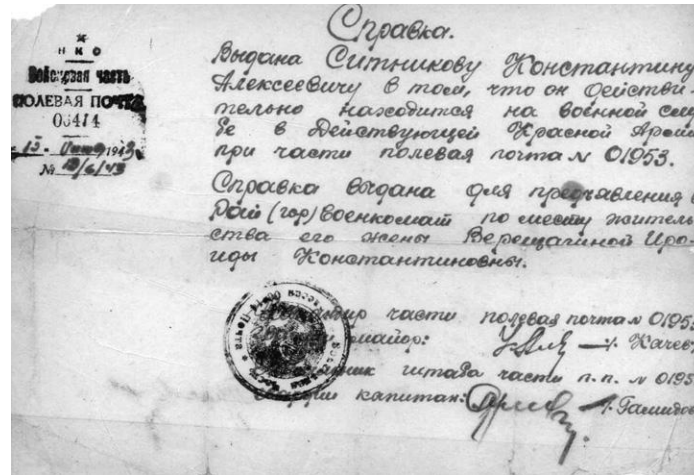 Справка.
НКО
Войсковая часть
ПОЛЕВАЯ ПОЧТА
13. 1943
№
Выдана Ситникову Константину
Алексеевичу в том, что он действи-
тельно находится на военной служ
бе в Действующей Красной Арми
при части полевая почта № 01953.
Справка выдана для предъявления в
Рай (гор) военкомат по месту житель-
ства его жены Верещагиной Ира-
иды Константиновны.
Командир части полевая почта № 01953
майор: Качев
Начальник штаба части п.п. № 0195
капитан: Гамидов